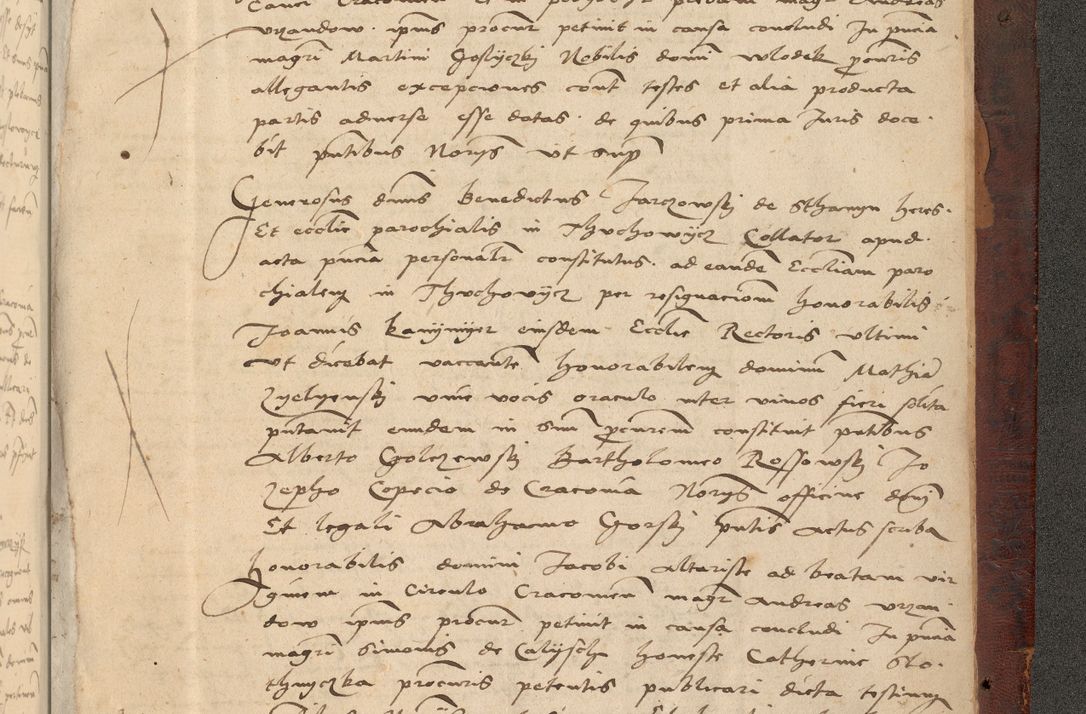 vrzandow ipius procur petiuit in causa concludi In pncia
magri Martini Goslyczky Nobilis domi Wlodek procuris
allegantis excepciones cont testes et alia producta
partis aduerse esse datas de quibus prima Iuris doce
bit pntibus Norys vt supra
Generosus dnus Benedictus Jarczowsky de Sthamyn heres
Et ecclie parochialis in Thuchowycz Collator apud
acta pncia personalr constitutus ad eande Eccliam paro
chialem in Thuchowycz per resignaciom honorabilis
Joannis kanynyer eiusdem Ecclie Rectoris vltimi
vt dicebat vaccante honorabilem dominu Mathia
Zyelyensky viue vocis oraculo inter viuos fieri solita
pntauit eundem in suu procurem constituit pntibus
Alberto Golczewsky Bartholomeo Rossowsky Jo
zepho Copecio de Cracouia Norys officine dnj
Et legali Abrahamo Gorsky pntis actus scriba
honorabilis domini Jacobi Altariste ad beatam vir
ginem in Circulo Cracouien magr Andreas vrzan
dow ipius procur petiuit in causa concludi In pncia
magri Simonis de Calysch honeste Catherine Slo
thnyczka procuris petentis publicari dicta testium